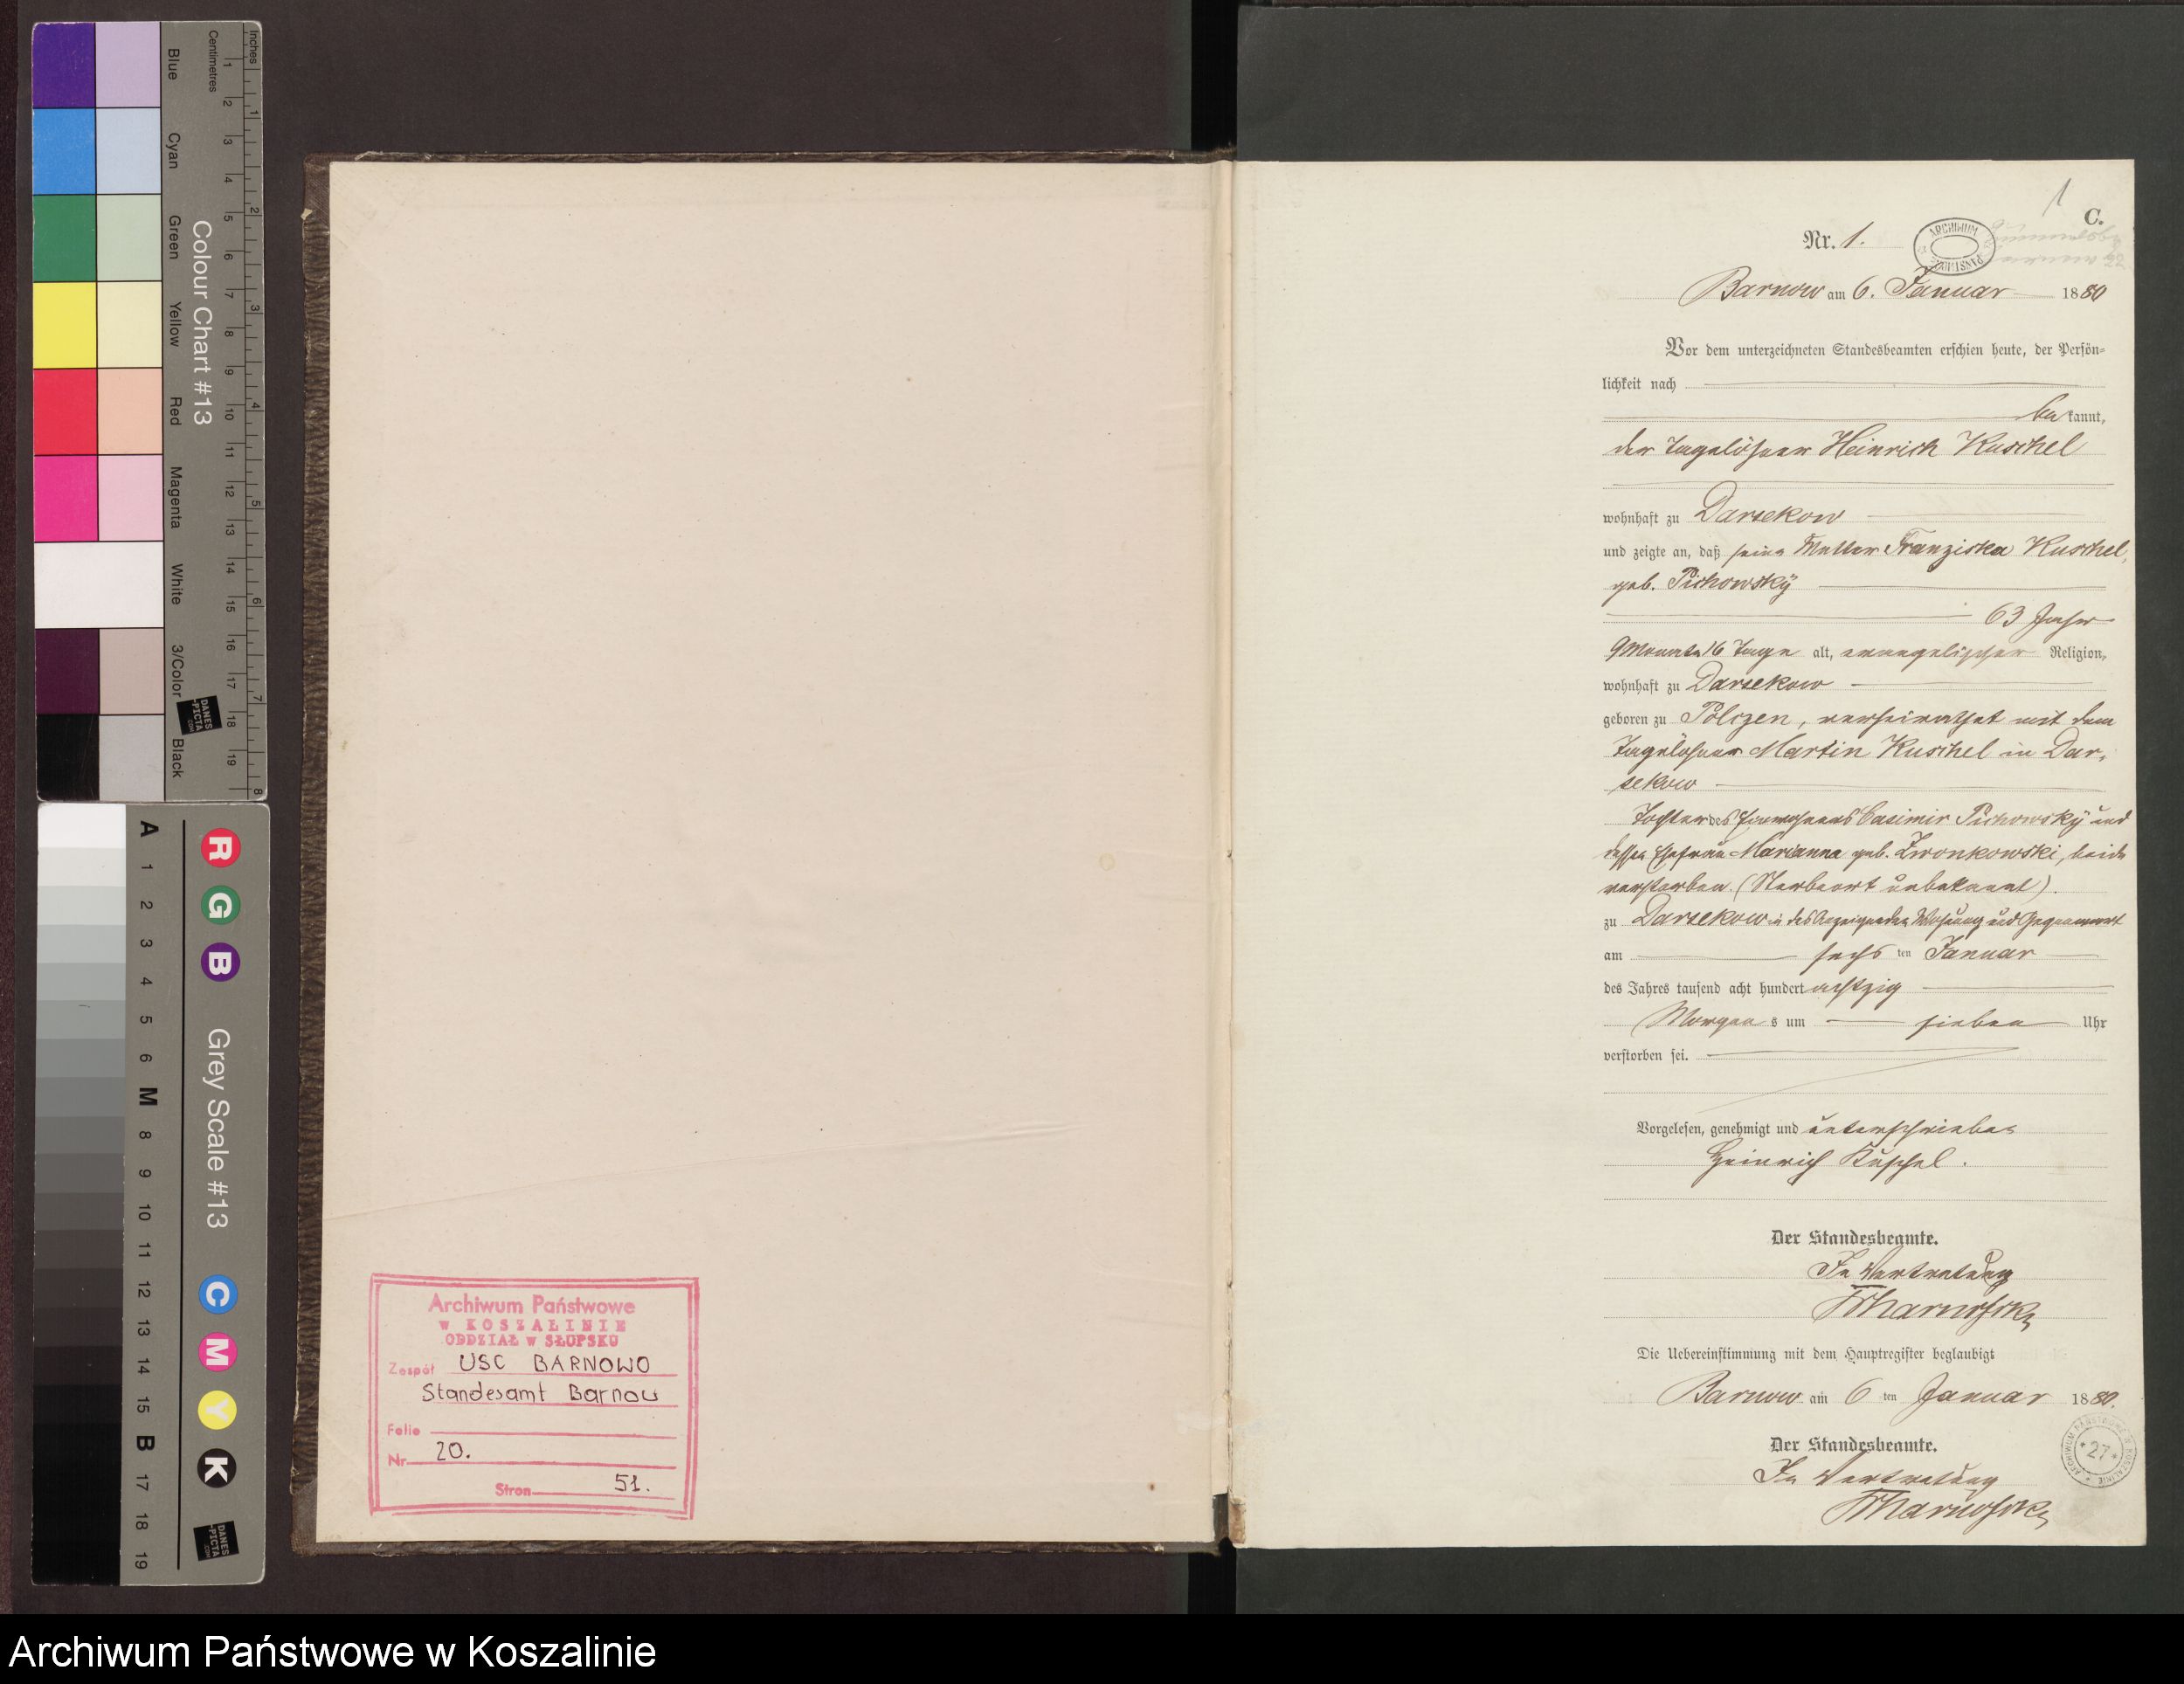 Inches
Centimetres
Colour Chart #13
Blue
Cyan
Green
Yellow
Red
Magenta
White
3/Color
Black
DANES
-PICTA
.COM
1 2 3 4 5 6 7 8 9 10 11 12 13 14 15 16 17 18 19
1 2 3 4 5 6 7 8
Grey Scale #13
R G B C M Y K
A 1 2 3 4 5 6 M 8 9 10 11 12 13 14 15 B 17 18 19
DANES
-PICTA
.COM
Archiwum Państwowe
w KOSZALINIE
ODDZIAŁ w SŁUPSKU
Zespół USC BARNOWO
Standesamt Barnow
Folio
Nr 20.
Stron 51.
1
C.
Nr. 1.
ARCHIWUM PAŃSTWOWE
Barnow am 6. Januar 1880
Vor dem unterzeichneten Standesbeamten erschien heute, der Persön-
lichkeit nach
bekannt,
der Tagelöhner Heinrich Kuschel
wohnhaft zu Darsekow
und zeigte an, daß seine Mutter Franziska Kuschel,
geb. Pichowskÿ
63 Jahr
9 Monate 16 Tage alt, evangelischer Religion,
wohnhaft zu Darsekow
geboren zu Polczen, verheirathet mit dem
Tagelöhner Martin Kuschel in Dar-
sekow
Tochter des Einwohners Casimir Pichowskÿ und
dessen Ehefrau Marianna geb. Zwonkowski, beide
verstorben. (Sterbeort unbekannt).
zu Darsekow in des Anzeigenden Wohnung und Gegenwart
am sechs ten Januar
des Jahres tausend acht hundert achtzig
Morgens um sieben Uhr
verstorben sei.
Vorgelesen, genehmigt und unterschrieben
Heinrich Kuschel.
Der Standesbeamte.
In Vertretung
Die Uebereinstimmung mit dem Hauptregister beglaubigt
Barnow am 6 ten Januar 1880.
Der Standesbeamte.
ARCHIWUM PAŃSTWOWE W KOSZALINIE
* 27 *
In Vertretung
Archiwum Państwowe w Koszalinie